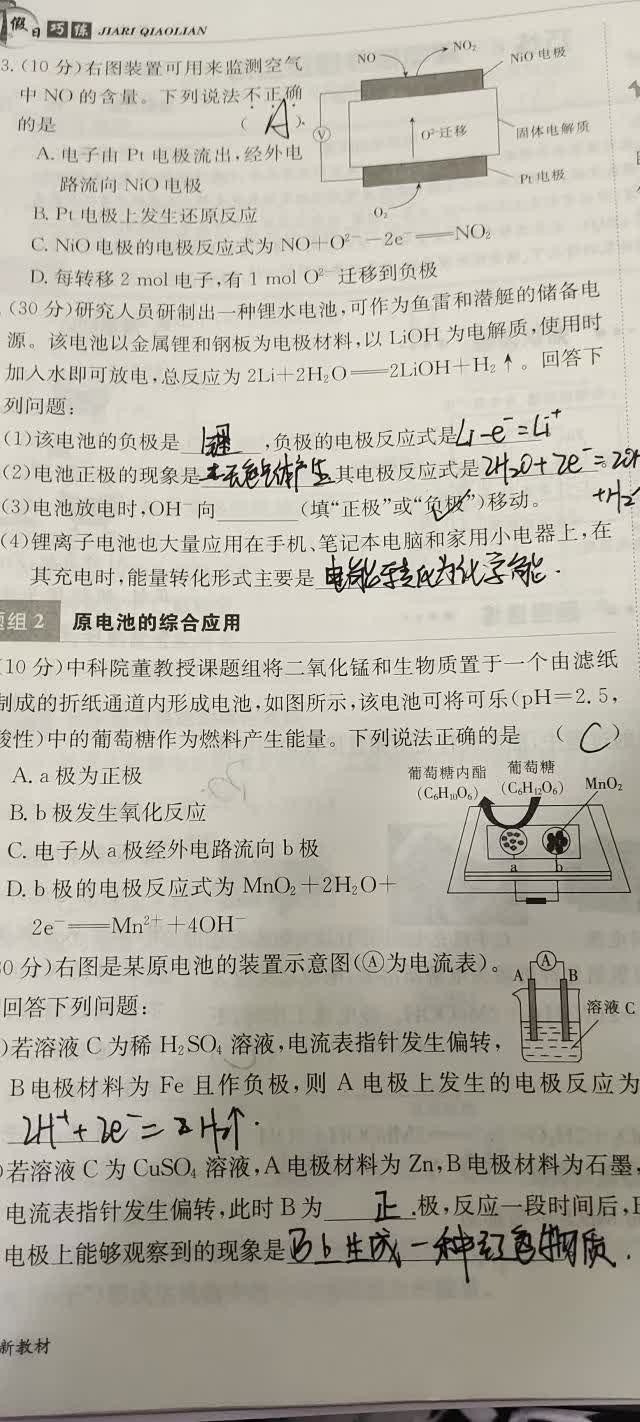 假日巧练 JIARI QIAOLIAN
3.(10分)右图装置可用来监测空气
中NO的含量。下列说法不正确
的是 ( A )
A. 电子由 Pt 电极流出,经外电
路流向 NiO 电极
B. Pt 电极上发生还原反应
C. NiO 电极的电极反应式为 NO+O²⁻-2e⁻══NO₂
D. 每转移 2 mol 电子,有 1 mol O²⁻ 迁移到负极
NO
NO₂
NiO 电极
V
O²⁻迁移
固体电解质
Pt 电极
O₂
(30分)研究人员研制出一种锂水电池,可作为鱼雷和潜艇的储备电
源。该电池以金属锂和钢板为电极材料,以 LiOH 为电解质,使用时
加入水即可放电,总反应为 2Li+2H₂O══2LiOH+H₂↑。回答下
列问题:
(1)该电池的负极是 锂 ,负极的电极反应式是 Li-e⁻=Li⁺
(2)电池正极的现象是 无色气体产生 其电极反应式是 2H₂O+2e⁻=2OH
+H₂
(3)电池放电时,OH⁻向______(填“正极”或“负极”)移动。
(4)锂离子电池也大量应用在手机、笔记本电脑和家用小电器上,在
其充电时,能量转化形式主要是 电能转化为化学能.
题组 2 原电池的综合应用
(10分)中科院董教授课题组将二氧化锰和生物质置于一个由滤纸
制成的折纸通道内形成电池,如图所示,该电池可将可乐(pH=2.5,
酸性)中的葡萄糖作为燃料产生能量。下列说法正确的是 ( C )
A. a 极为正极
B. b 极发生氧化反应
C. 电子从 a 极经外电路流向 b 极
D. b 极的电极反应式为 MnO₂+2H₂O+
2e⁻══Mn²⁺+4OH⁻
葡萄糖内酯
(C₆H₁₀O₆)
葡萄糖
(C₆H₁₂O₆)
MnO₂
a
b
0分)右图是某原电池的装置示意图(Ⓐ为电流表)。
回答下列问题:
)若溶液 C 为稀 H₂SO₄ 溶液,电流表指针发生偏转,
B 电极材料为 Fe 且作负极,则 A 电极上发生的电极反应为
2H⁺+2e⁻=H₂↑.
A
A
B
溶液 C
)若溶液 C 为 CuSO₄ 溶液,A 电极材料为 Zn,B 电极材料为石墨,
电流表指针发生偏转,此时 B 为 正 极,反应一段时间后,B
电极上能够观察到的现象是 B上生成一种红色物质.
新教材